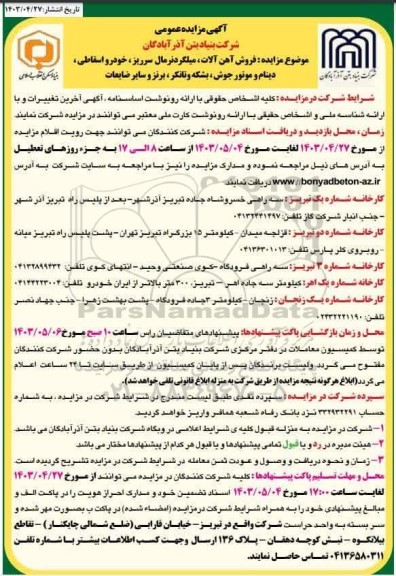 تاریخ انتشار: ۱۴۰۳/۰۴/۲۷
آگهی مزایده عمومی
شرکت بنیاد بتن آذرآبادگان
موضوع مزایده : فروش آهن آلات ، میلگرد نرمال سرریز ، خودرو اسقاطی ،
دینام و موتور جوش ، بشکه و تانکر ، برنز و سایر ضایعات
شرکت بنیاد بتن آذرآبادگان
شرایط شرکت در مزایده : کلیه اشخاص حقوقی با ارائه رونوشت اساسنامه ، آگهی آخرین تغییرات و با
ارائه شناسه ملی و اشخاص حقیقی با ارائه رونوشت کارت ملی معتبر می توانند در مزایده شرکت نمایند.
زمان ، محل بازدید و دریافت اسناد مزایده : شرکت کنندگان می توانند جهت رویت اقلام مزایده
از مورخ ۱۴۰۳/۰۴/۲۷ لغایت مورخ ۱۴۰۳/۰۵/۰۴ از ساعت ۸ الی ۱۷ به جزء روزهای تعطیل
به آدرس های ذیل مراجعه نموده و مدارک مزایده را نیز با مراجعه به سایت شرکت به آدرس
www.bonyadbeton-az.ir دریافت نمایند.
کارخانه شماره یک تبریز : سه راهی خسروشاه جاده تبریز آذرشهر- بعد از پلیس راه تبریز آذر شهر
- جنب انبار شرکت گاز تلفن:
کارخانه شماره دو تبریز : قزلجه میدان - کیلومتر ۱۵ بزرگراه تبریز تهران - پشت پلیس راه تبریز میانه
- روبروی کلر پارس تلفن: ۰۴۱۳۶۳۰۱۰۱۳
کارخانه شماره ۳ تبریز : سه راهی فرودگاه -کوی صنعتی وحید - انتهای کوی تلفن: ۰۴۱۳۲۸۹۹۴۳۲
کارخانه شماره یک اهر: کیلومتر سه جاده اهر - تبریز ۳۰۰ متر بالاتر از ایران خودرو تلفن:
کارخانه شماره یک زنجان : زنجان - کیلومتر ۳جاده فرودگاه - پشت بهشت زهرا - جنب جهاد نصر
تلفن:
محل و زمان بازگشایی پاکت پیشنهادها: پیشنهادهای متقاضیان راس ساعت ۱۰ صبح مورخ ۱۴۰۳/۰۵/۰۶
توسط کمیسیون معاملات در دفتر مرکزی شرکت بنیاد بتن آذرآبادگان بدون حضور شرکت کنندگان
مفتوح می گردد. ولیست برندگان پس از پایان کمیسیون از طریق سایت تا ۲۴ ساعت اعلام
می گردد(ابلاغ هرگونه نتیجه مزایده از طریق شرکت به منزله ابلاغ قانونی تلقی خواهد شد).
سپرده شرکت در مزایده : سپرده نقدی طبق لیست مندرج در شرایط شرکت در مزایده به شماره
حساب نزد بانک رفاه شعبه همافر واریز خواهد گردید.
۱- شرکت در مزایده به منزله قبول کلیه ی شرایط اعلامی در وبگاه شرکت بنیاد بتن آذرآبادگان می باشد.
۲- هیئت مدیره در رد و یا قبول تمامی پیشنهادها و یا قبول هر کدام از پیشنهادها مختار می باشد.
۳- زمان و نحوه دریافت و وصول و عودت ثمن معامله در شرایط شرکت در مزایده تشریح گردیده است.
محل و مهلت تسلیم پاکت پیشنهادها : کلیه شرکت کنندگان در مزایده می توانند از مورخ ۱۴۰۳/۰۴/۲۷
لغایت ساعت ۱۷:۰۰ مورخ ۱۴۰۳/۰۵/۰۴ اسناد تضمین خود و مدارک احراز هویت را در پاکت الف و
مبالغ پیشنهادی خود را به همراه شرایط شرکت در مزایده (امضاء شده) در پاکت ب بصورت مهر شده و
سر بسته به واحد حراست شرکت واقع در تبریز - خیابان فارابی (ضلع شمالی چایکنار) - تقاطع
بیلانکوه - نبش کوچه دهقان - پلاک ۱۳۶ ارسال وجهت کسب اطلاعات بیشتر با شماره تلفن
۰۴۱۳۶۵۸۰۳۱۱ تماس حاصل نمایند.
ParsNamadData